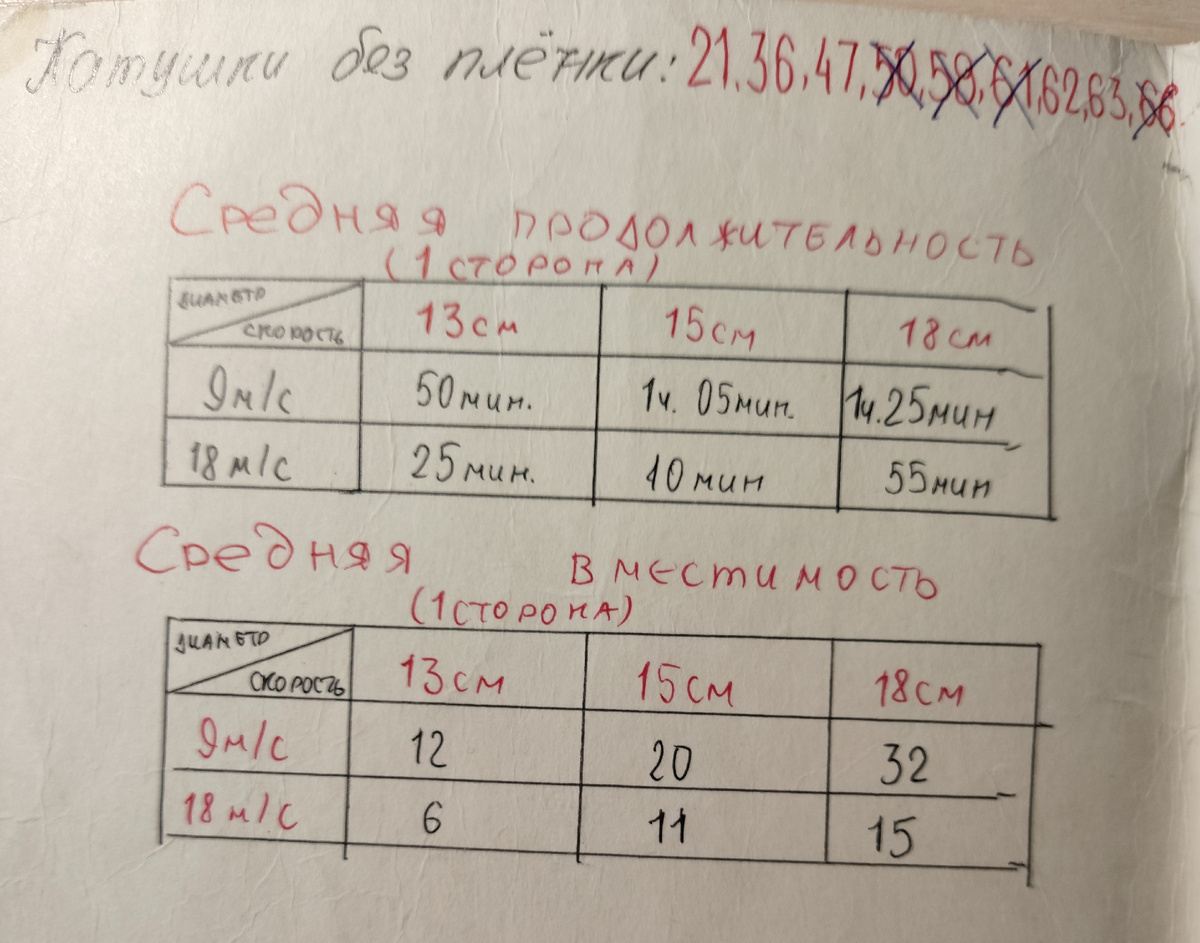 Катушки без плётки: 21, 36, 47, 50, 58, 61, 62, 63, 66.
Средняя продолжительность
(1 сторона)
диаметр 13см 15см 18см
скорость
9м/с 50мин. 1ч. 05мин. 1ч.25мин
18м/с 25мин. 40мин 55мин
Средняя вместимость
(1 сторона)
диаметр 13см 15см 18см
скорость
9м/с 12 20 32
18м/с 6 11 15